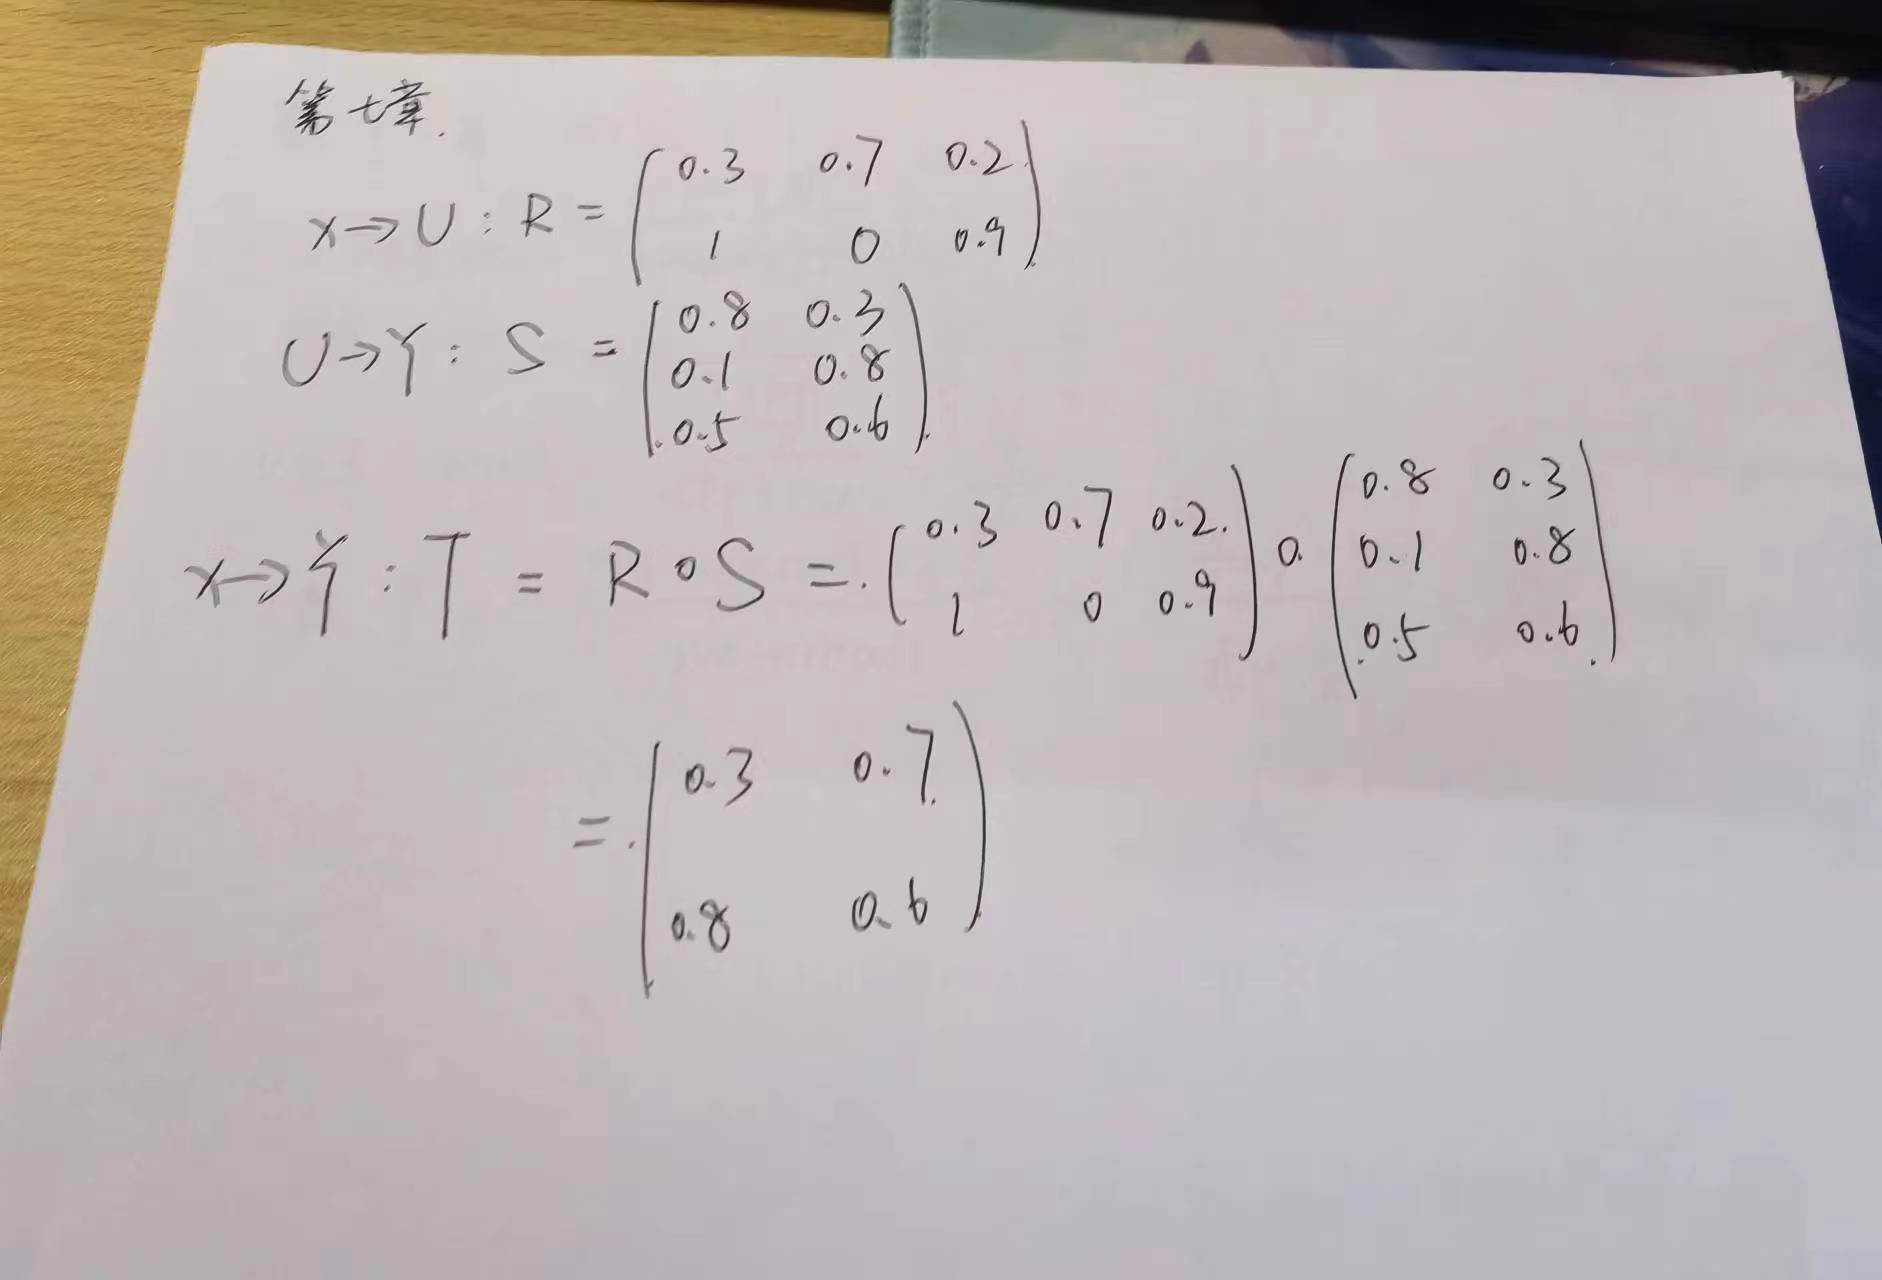 第七章.
X→U: R = (0.3 0.7 0.2
1 0 0.9)
U→Y: S = (0.8 0.3
0.1 0.8
0.5 0.6)
X→Y: T = R∘S = (0.3 0.7 0.2
1 0 0.9) ∘ (0.8 0.3
0.1 0.8
0.5 0.6)
= (0.3 0.7
0.8 0.6)